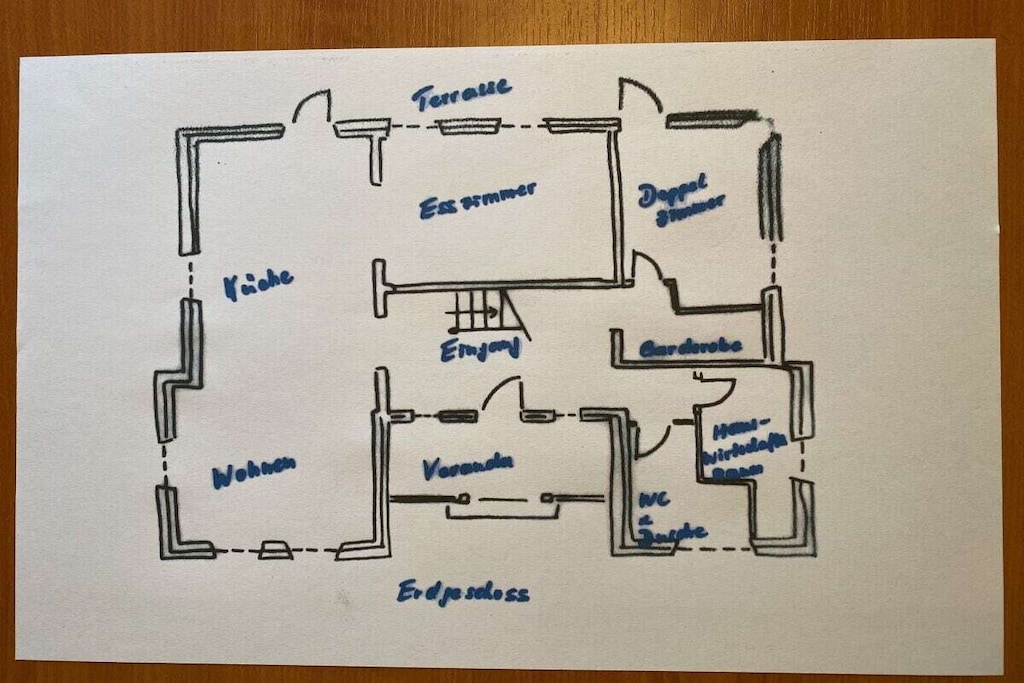 Terrasse
Esszimmer
Doppel
zimmer
Küche
Eingang
Garderobe
Wohnen
Veranda
Haus-
Wirtschafts
Raum
WC
u
Dusche
Erdgeschoss